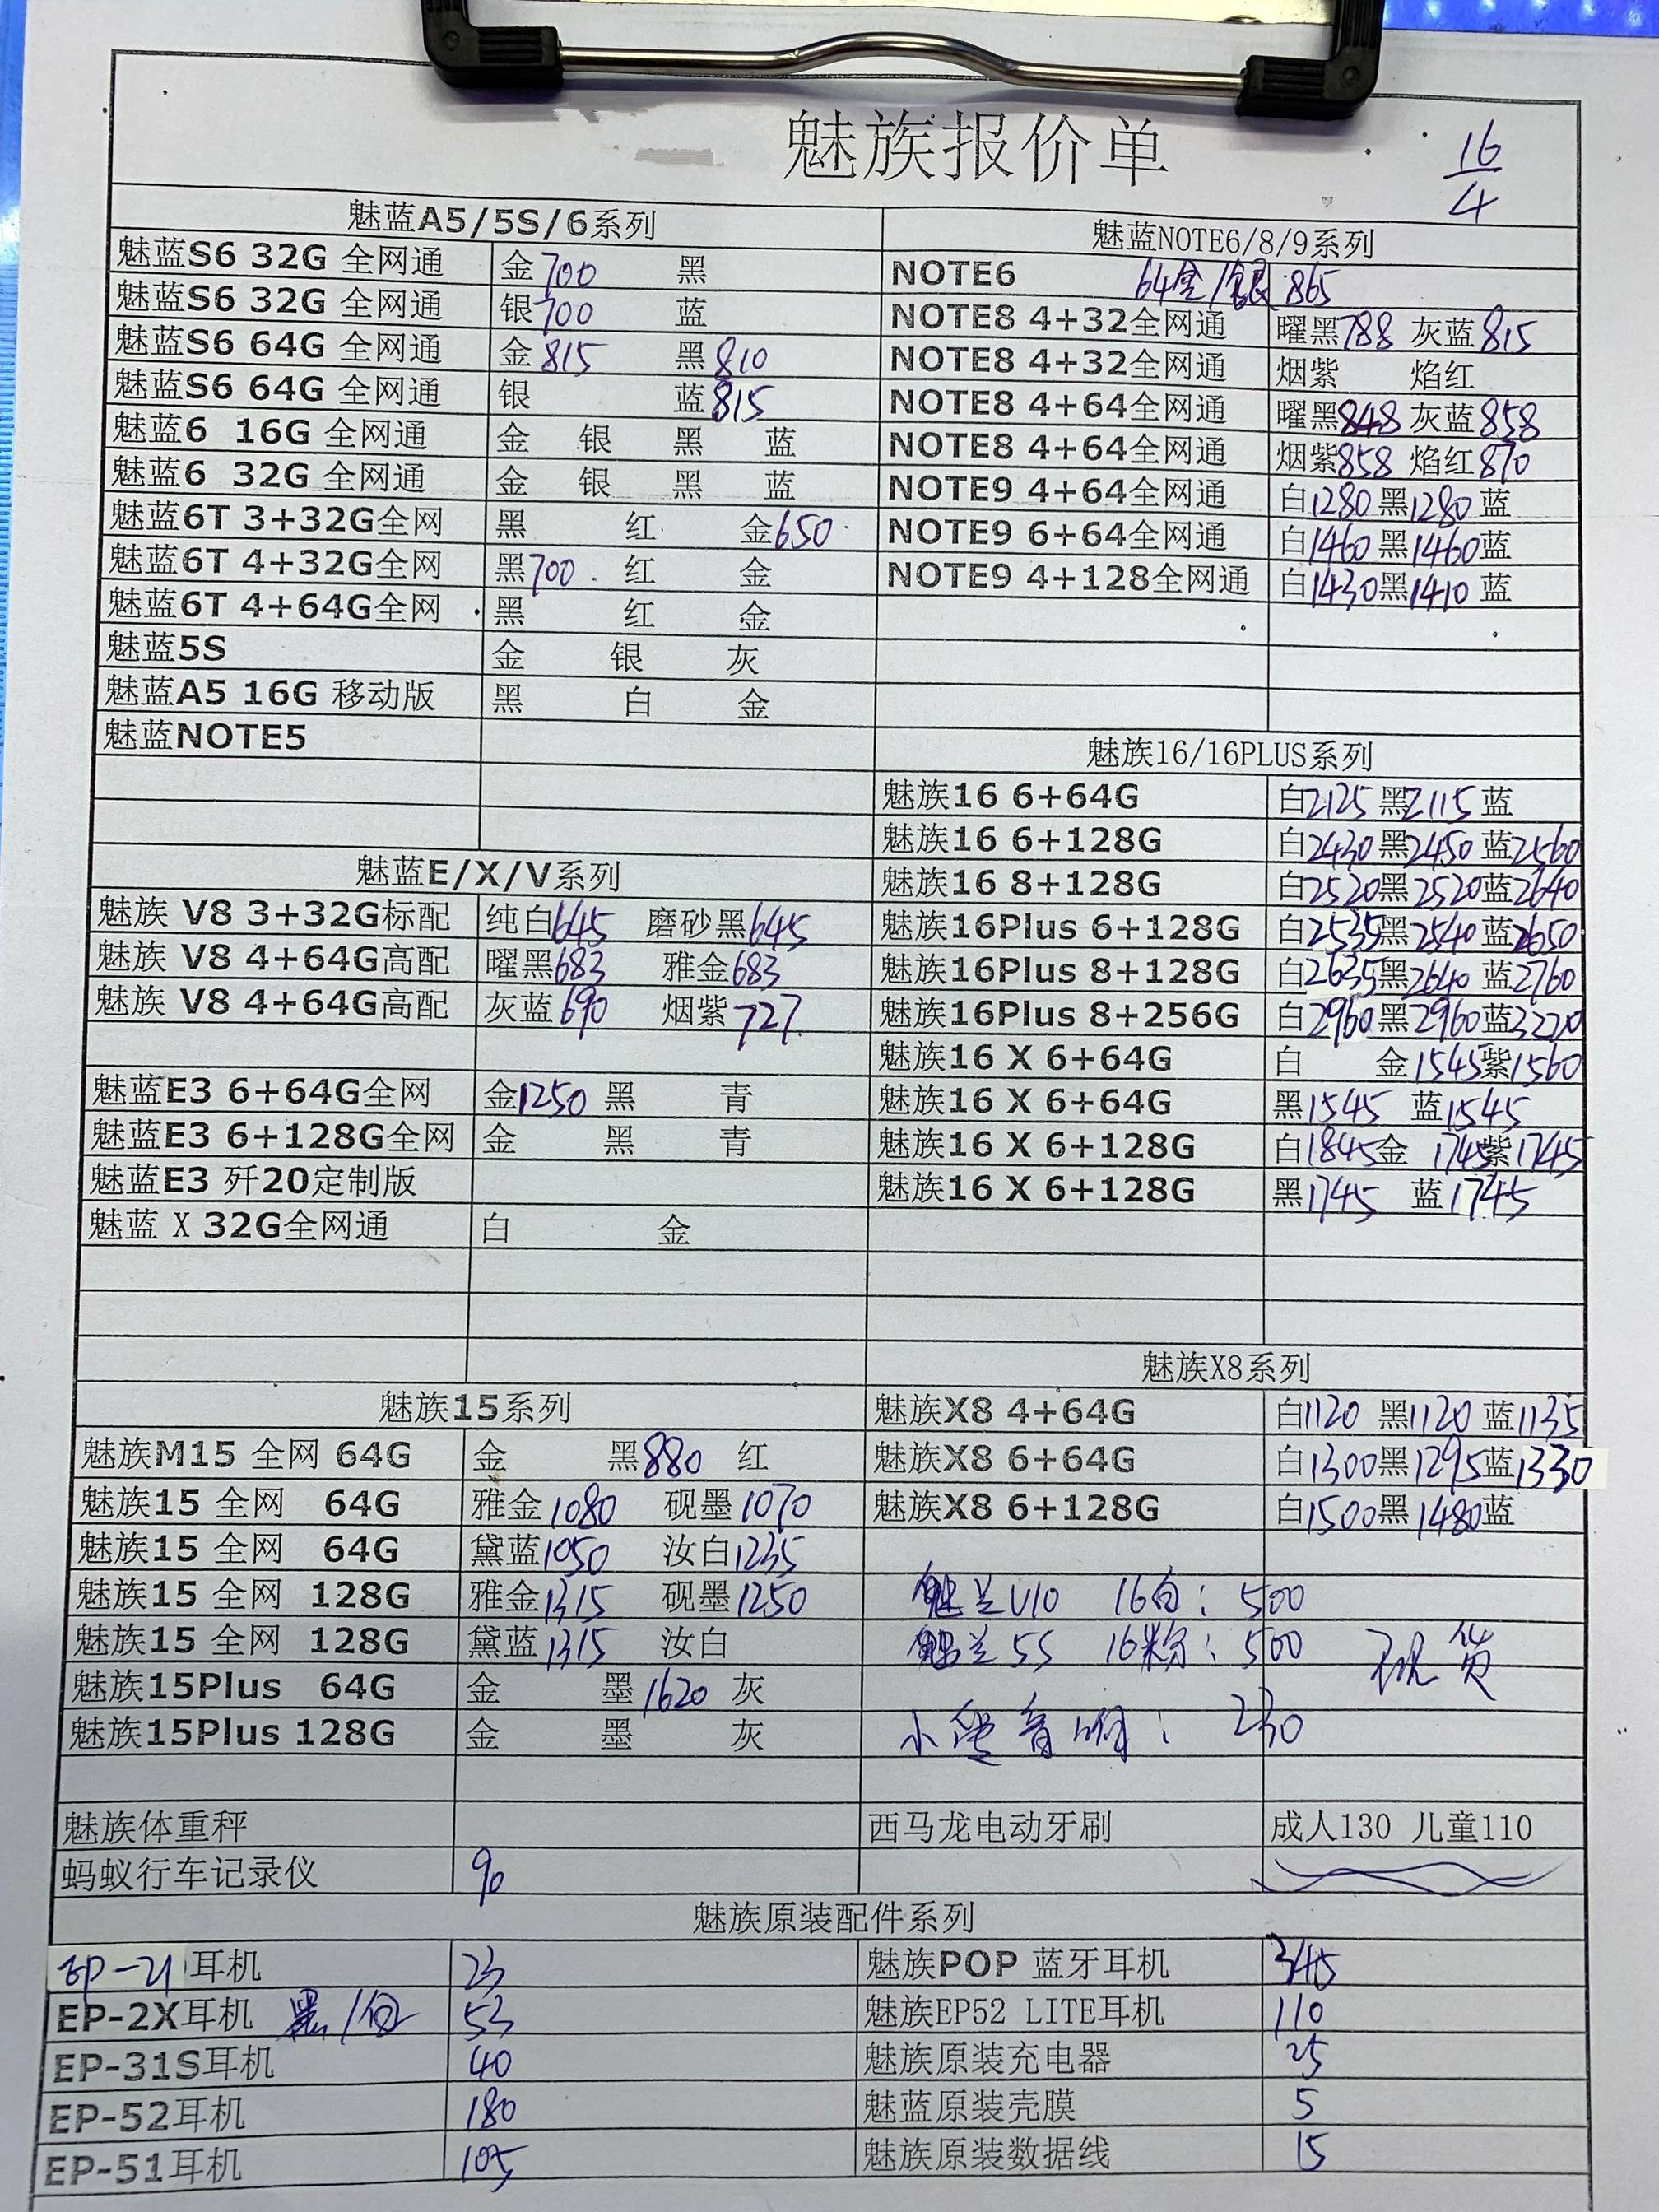 魅族报价单
16/4
魅蓝A5/5S/6系列
魅蓝S6 32G 全网通 金700 黑
魅蓝S6 32G 全网通 银700 蓝
魅蓝S6 64G 全网通 金815 黑810
魅蓝S6 64G 全网通 银 蓝815
魅蓝6 16G 全网通 金 银 黑 蓝
魅蓝6 32G 全网通 金 银 黑 蓝
魅蓝6T 3+32G全网 黑 红 金650
魅蓝6T 4+32G全网 黑700 红 金
魅蓝6T 4+64G全网 黑 红 金
魅蓝5S 金 银 灰
魅蓝A5 16G 移动版 黑 白 金
魅蓝NOTE5
魅蓝E/X/V系列
魅族 V8 3+32G标配 纯白645 磨砂黑645
魅族 V8 4+64G高配 曜黑683 雅金683
魅族 V8 4+64G高配 灰蓝690 烟紫727
魅蓝E3 6+64G全网 金1250 黑 青
魅蓝E3 6+128G全网 金 黑 青
魅蓝E3 歼20定制版
魅蓝 X 32G全网通 白 金
魅族15系列
魅族M15 全网 64G 金 黑880 红
魅族15 全网 64G 雅金1080 砚墨1070
魅族15 全网 64G 黛蓝1050 汝白1235
魅族15 全网 128G 雅金1315 砚墨1250
魅族15 全网 128G 黛蓝1315 汝白
魅族15Plus 64G 金 墨1620 灰
魅族15Plus 128G 金 墨 灰
魅族体重秤
蚂蚁行车记录仪 90
魅蓝NOTE6/8/9系列
NOTE6 64金/银 865
NOTE8 4+32全网通 曜黑788 灰蓝815
NOTE8 4+32全网通 烟紫 焰红
NOTE8 4+64全网通 曜黑848 灰蓝858
NOTE8 4+64全网通 烟紫858 焰红870
NOTE9 4+64全网通 白1280 黑1280 蓝
NOTE9 6+64全网通 白1460 黑1460 蓝
NOTE9 4+128全网通 白1430 黑1410 蓝
魅族16/16PLUS系列
魅族16 6+64G 白2125 黑2115 蓝
魅族16 6+128G 白2430 黑2450 蓝2560
魅族16 8+128G 白2520 黑2520 蓝2640
魅族16Plus 6+128G 白2535 黑2540 蓝2650
魅族16Plus 8+128G 白2635 黑2640 蓝2760
魅族16Plus 8+256G 白2960 黑2960 蓝3220
魅族16 X 6+64G 白 金1545 紫1560
魅族16 X 6+64G 黑1545 蓝1545
魅族16 X 6+128G 白1845 金1745 紫1745
魅族16 X 6+128G 黑1745 蓝1745
魅族X8系列
魅族X8 4+64G 白1120 黑1120 蓝1135
魅族X8 6+64G 白1300 黑1295 蓝1330
魅族X8 6+128G 白1500 黑1480 蓝
魅兰U10 16白: 500
魅兰5S 16粉: 500 现货
小熊音响: 230
西马龙电动牙刷 成人130 儿童110
魅族原装配件系列
EP-21耳机 23 魅族POP 蓝牙耳机 345
EP-2X耳机 黑/白 53 魅族EP52 LITE耳机 110
EP-31S耳机 40 魅族原装充电器 25
EP-52耳机 180 魅蓝原装壳膜 5
EP-51耳机 105 魅族原装数据线 15